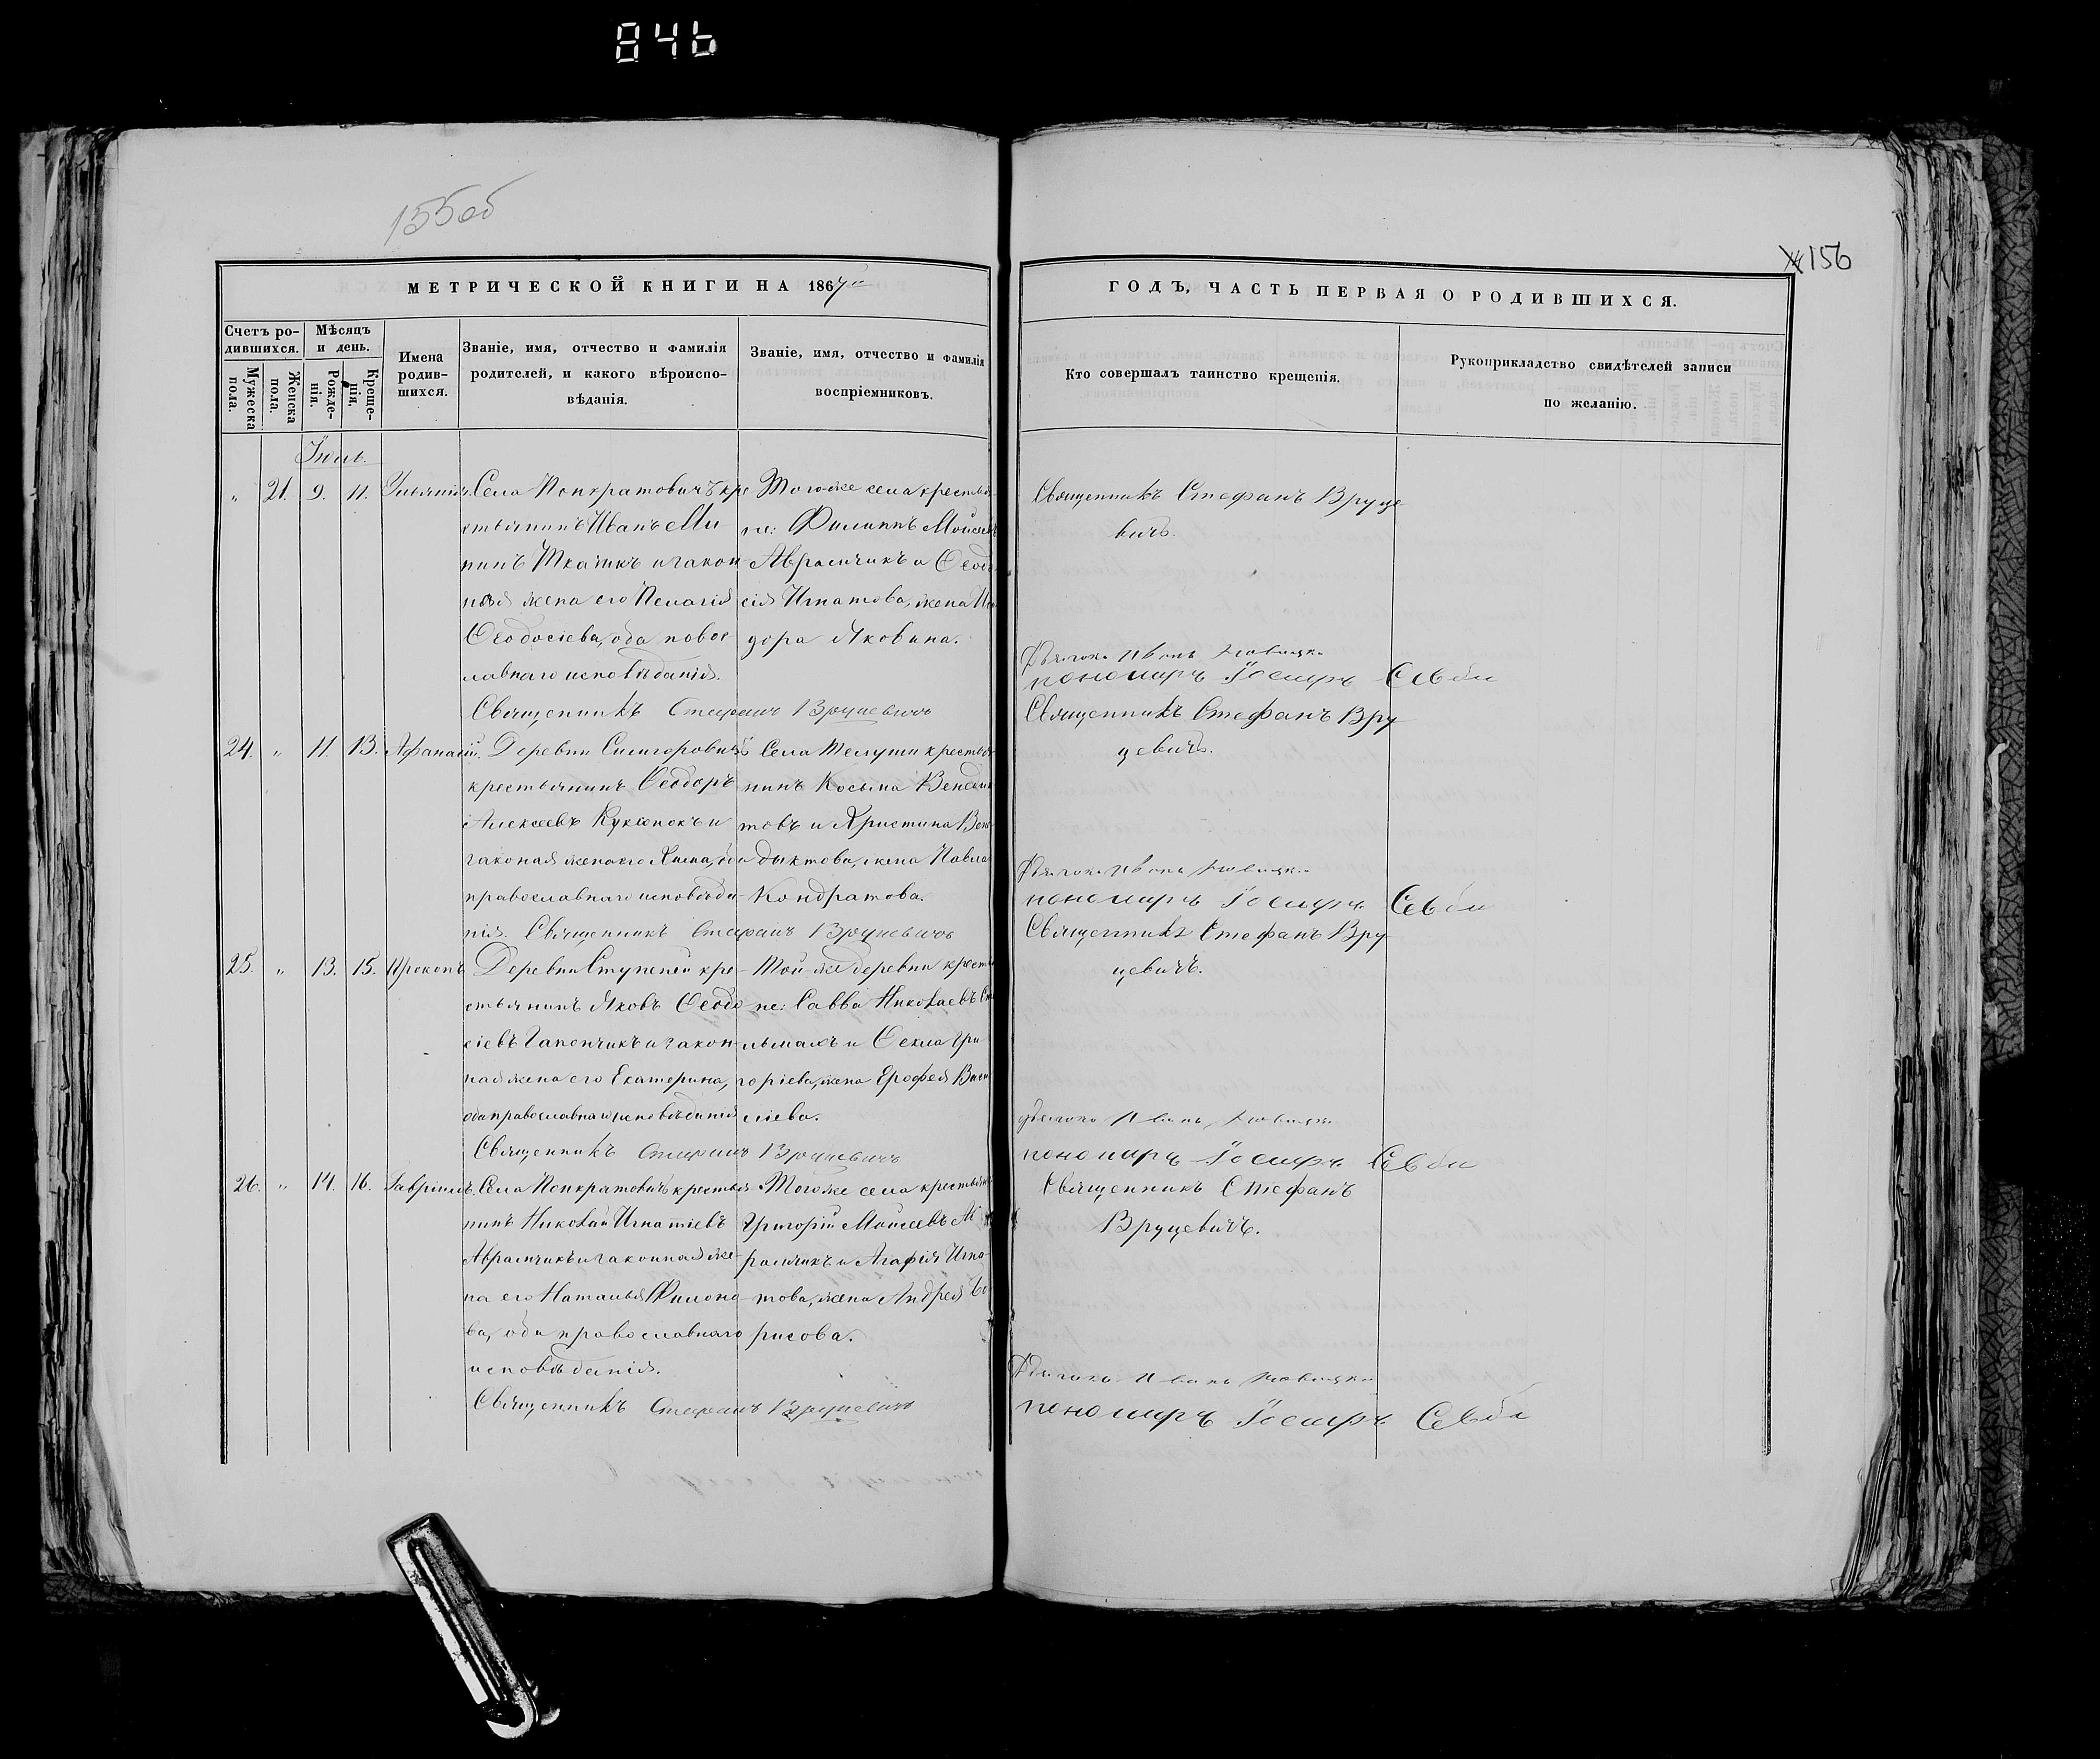 846
155об
156
МЕТРИЧЕСКОЙ КНИГИ НА 1867
ГОДЪ, ЧАСТЬ ПЕРВАЯ О РОДИВШИХСЯ.
Счетъ ро-
дившихся.
Мужеска
пола.
Женска
пола.
Мѣсяцъ
и день.
Рожде-
нія.
Креще-
нія.
Имена
родив-
шихся.
Званіе, имя, отчество и фамилія
родителей, и какого вѣроиспо-
вѣданія.
Званіе, имя, отчество и фамилія
воспріемниковъ.
Кто совершалъ таинство крещенія.
Рукоприкладство свидѣтелей записи
по желанію.
Іюль.
„ 21. 9. 11.
Села Понкратовичъ кре
стьянинъ Иванъ Ми
нинъ Ткачикъ и закон
ная жена его Пелагія
Ѳеодосіева, оба повос
лавнаго исповѣданія.
Священникъ Стефанъ Вруцевичъ
Того-же села крестья-
не: Филиппъ Мойсеевъ
Аврамчикъ и Ѳеодо
сія Игнатова, жена Иси
дора Яковина.
Священникъ Стефанъ Вруце
вичъ.
Иванъ
пономарь Іосифъ
24. „ 11. 13. Афанасій.
Деревни Синигоровичъ
крестьянинъ Ѳеодоръ
Алексеевъ и
законая жена его оба
православнаго исповѣда-
нія. Священникъ Стефанъ Вруцевичъ
Села Телуши крестья
нинъ Косьма Венедик
товъ и Христина Вене
диктова, жена Павла
Кондратова.
Священникъ Стефанъ Вру
цевичъ.
Иванъ
пономарь Іосифъ
25. „ 13. 15. Прокопъ
Деревни Ступеней кре-
стьянинъ Яковъ Ѳеодо
сіевъ Гапончикъ и закон
ная жена его Екатерина,
оба православнаго исповѣданія
Священникъ Стефанъ Вруцевичъ
Той-же деревни крестья
не: Савва Николаевъ
и Ѳекла Гри
горіева, жена Ерофея Васи
ліева.
Священникъ Стефанъ Вру
цевичъ.
Иванъ
пономарь Іосифъ
26. „ 14. 16. Гавріилъ.
Села Понкратовичъ крестья-
нинъ Николай Игнатіевъ
Аврамчикъ и законная же-
на его Наталья Филоно-
ва, оба православнаго
исповѣданія.
Священникъ Стефанъ Вруцевичъ
Того же села крестьян
Григорій Моисеевъ Ав
рамчикъ и Агафія Игна
това, жена Андрея Бо
рисова.
Священникъ Стефанъ
Вруцевичъ.
Иванъ
пономарь Іосифъ